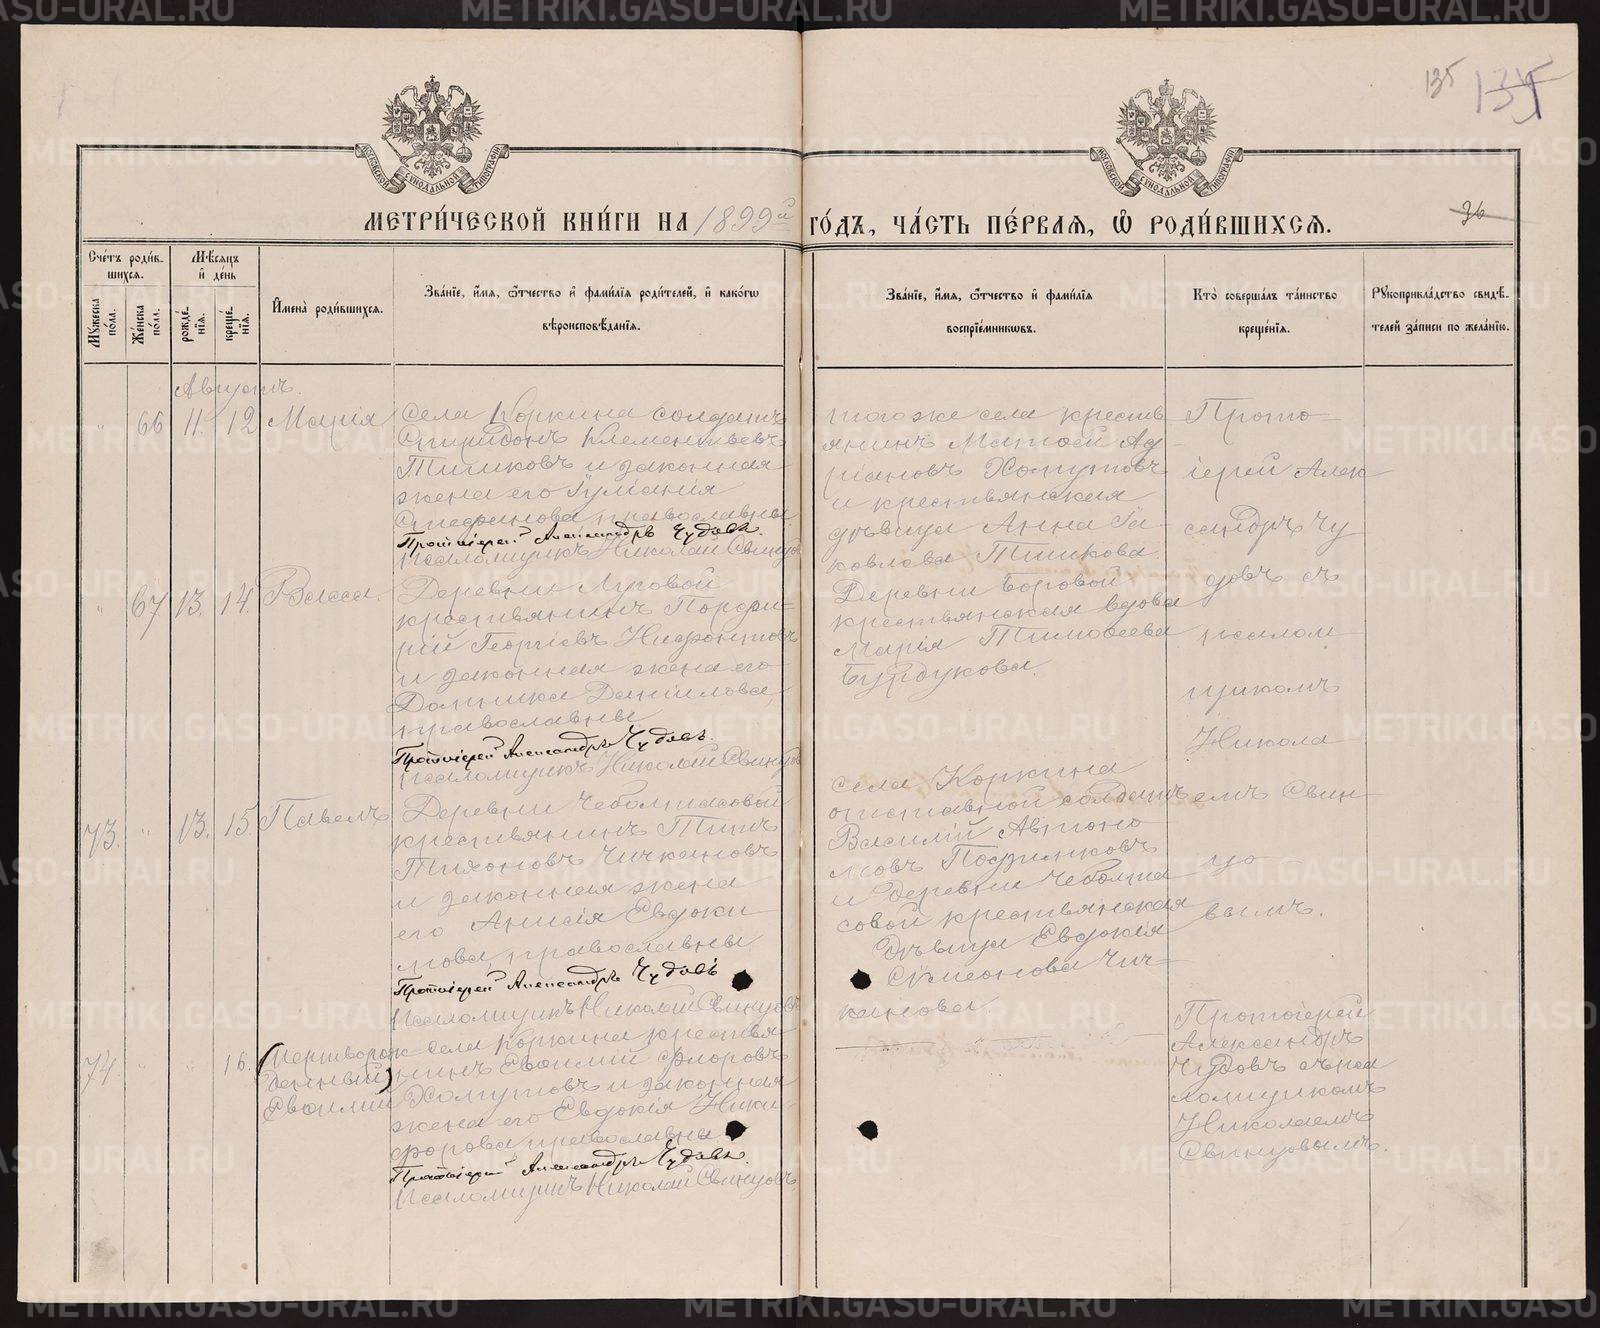 135 135
МОСКОВСКОЙ СѴНОДАЛЬНОЙ ТИПОГРАФІИ
МОСКОВСКОЙ СѴНОДАЛЬНОЙ ТИПОГРАФІИ
МЕТРИ́ЧЕСКОЙ КНИ́ГИ НА 1899й ГО́ДЪ, ЧА́СТЬ ПЕ́РВАЯ, Ѽ РОДИ́ВШИХСЯ.
36
Сче́тъ роди́в-
шихся.
Мѣ́сяцъ
и҆ де́нь
Мꙋ́жеска по́ла.
Же́нска по́ла.
рожде́-
нїя.
креще́-
нїя.
И҆мена̀ роди́вшихся.
Зва́нїе, и҆́мя, ѻ҆́тчество и҆ фами́лїя роди́телей, и҆ како́гѡ
вѣроисповѣ́данїя.
Зва́нїе, и҆́мя, ѻ҆́тчество и҆ фами́лїя
воспрїе́мникѡвъ.
Кто̀ соверша́лъ та́инство
креще́нїя.
Рꙋкоприкла́дство свидѣ́-
телей за́писи по жела́нїю.
Августъ.
" 66 11. 12 Марія
Села Коркина солдатъ
Спиридонъ Клементьевъ
Тишковъ и законная
жена его
православны
Протоіерей Александръ Чудовъ.
Псаломщикъ Николай Свинцовъ
того же села кресть
янинъ Матѳей Ад
ріановъ Хомутовъ
и крестьянская
дѣвица Анна Іа-
ковлева Тишкова.
Прото-
іерей Алек
сандръ Чу
довъ съ
псалом
щикомъ
Никола
емъ Свин-
цо
вымъ.
" 67 13. 14. Васса.
Деревни Луговой
крестьянинъ Порфи-
рій Георгіевъ Нифонтовъ
и законная жена его
Домника Даніилова,
православны
Протоіерей Александръ Чудовъ.
Псаломщикъ Николай Свинцовъ
Деревни Боровой
крестьянская вдова
Марія Тимоѳеева
Бурдукова.
73. " 13. 15 Павелъ
Деревни Чеболтасовой
крестьянинъ Титъ
Тихоновъ Чичкановъ
и законная жена
его Анисія Евдоки
мова, православны.
Протоіерей Александръ Чудовъ
Псаломщикъ Николай Свинцовъ
села Коркина
отставной солдатъ
Василій Автоно
мовъ
и деревни Чеболта
совой крестьянская
дѣвица Евдокія
Сѵмеонова Чич-
канова.
74 " " 16. (Мертворож
денный)
Евѳимій
села Коркина крестья
нинъ Евѳимій Флоровъ
Хомутовъ и законная
жена его Евдокія Ники
форова, православны.
Протоіерей Александръ Чудовъ.
Псаломщикъ Николай Свинцовъ.
Протоіерей
Александръ
Чудовъ съ пса
ломщикомъ
Николаемъ
Свинцовымъ.
METRIKI.GASO-URAL.RU